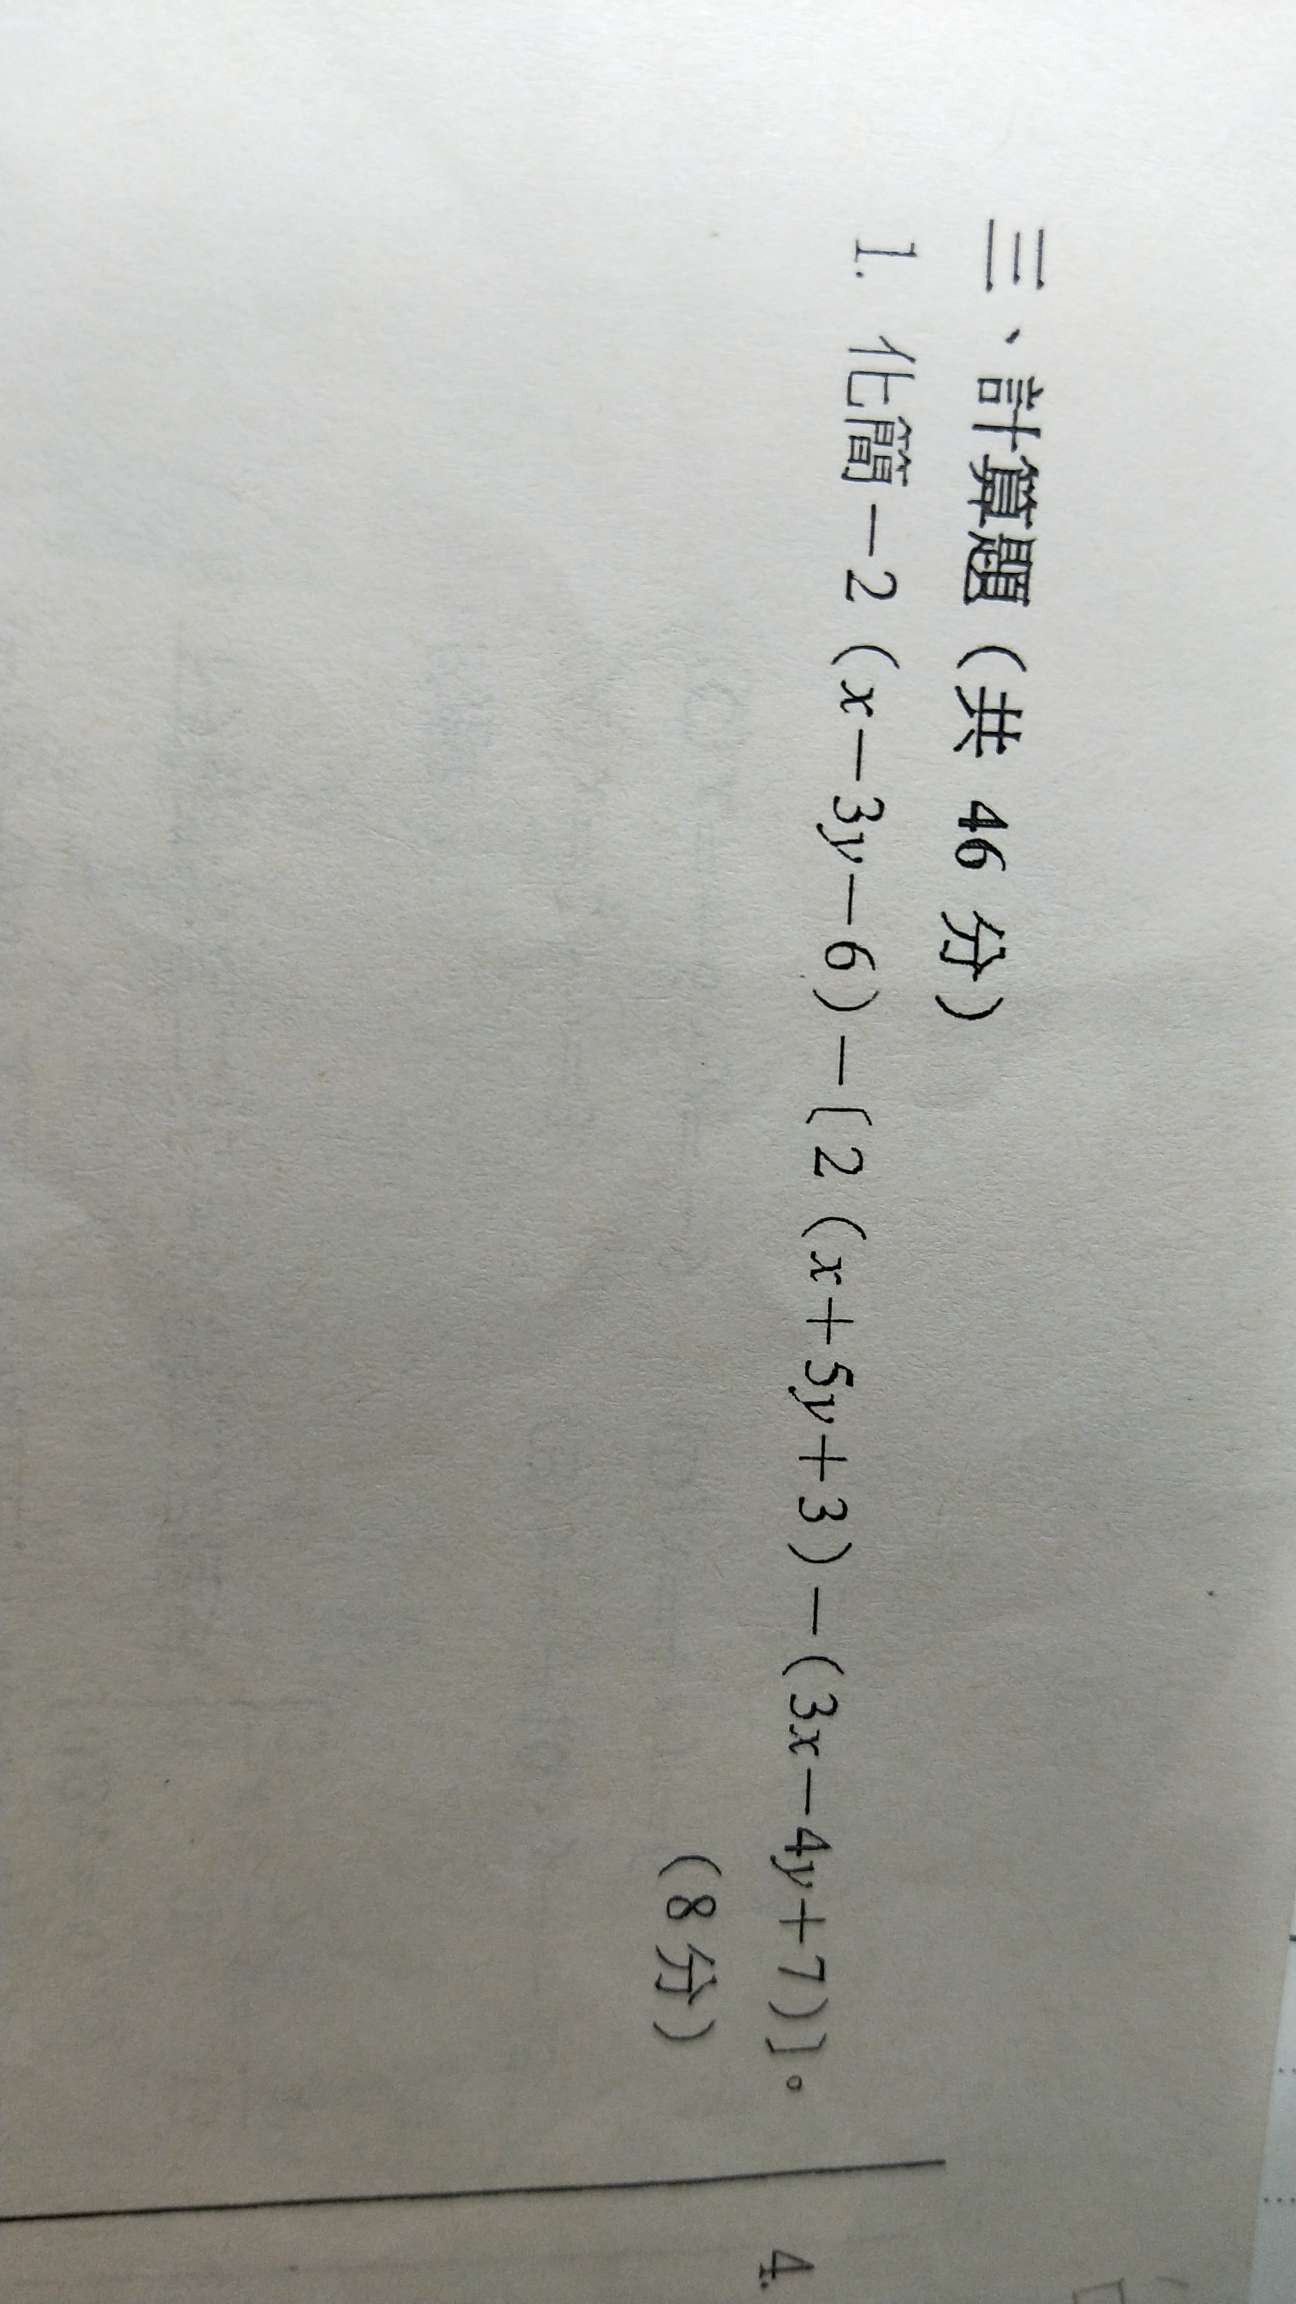 三、計算題(共 46 分)
1. 化簡-2(x-3y-6)-[2(x+5y+3)-(3x-4y+7)]。
(8分)
4.